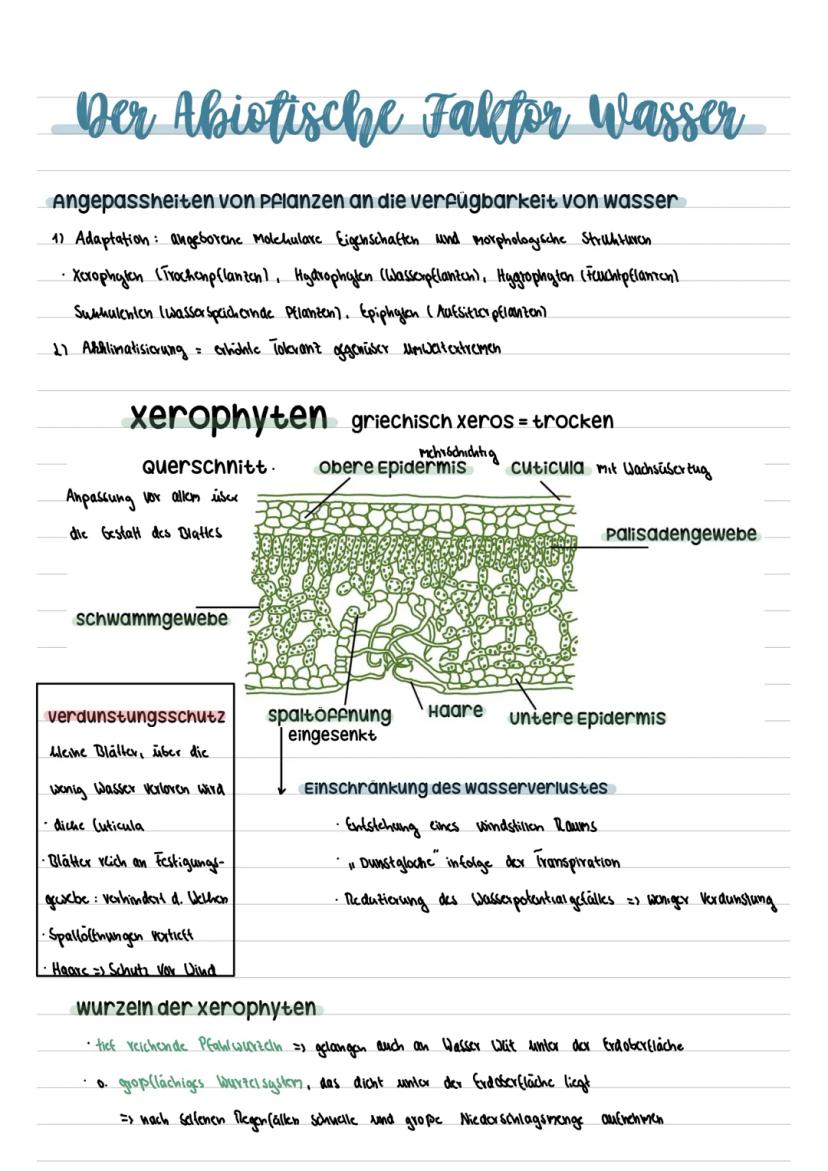 Der Abiotische Faktor Wasser
Angepasstheiten von Pflanzen an die Verfügbarkeit von Wasser
1) Adaptation: angeborene Molekulare Eigenschaften und morphologische Strukturen
· Xerophyten (Trockenpflanzen), Hydrophyten (Wasserpflanzen), Hygrophyten (Feuchtpflanzen)
Sukkulenten (Wasserspeichernde Pflanzen), Epiphyten (Aufsitzerpflanzen)
2) Akklimatisierung = erhöhte Toleranz gegenüber Umweltextremen
Xerophyten griechisch xeros = trocken
Querschnitt·
mehrschichtig
obere Epidermis
Cuticula mit Wachsüberzug
Anpassung vor allem über
die Gestalt des Blattes
Palisadengewebe
Schwammgewebe
Spaltöffnung
eingesenkt
Haare
untere Epidermis
Verdunstungsschutz
kleine Blätter, über die
wenig Wasser verloren wird
· dicke Cuticula
· Blätter reich an Festigungs-
gewebe: verhindert d. Welken
· Spaltöffnungen vertieft
· Haare => Schutz vor Wind
Einschränkung des Wasserverlustes
· Entstehung eines windstillen Raums
· „Dunstglocke" infolge der Transpiration
· Reduzierung des Wasserpotentialgefälles => weniger Verdunstung
Wurzeln der Xerophyten
· tief reichende Pfahlwurzeln => gelangen auch an Wasser weit unter der Erdoberfläche
· o. großflächiges Wurzelsystem, das dicht unter der Erdoberfläche liegt
=> nach seltenen Regenfällen schnelle und große Niederschlagsmenge aufnehmen